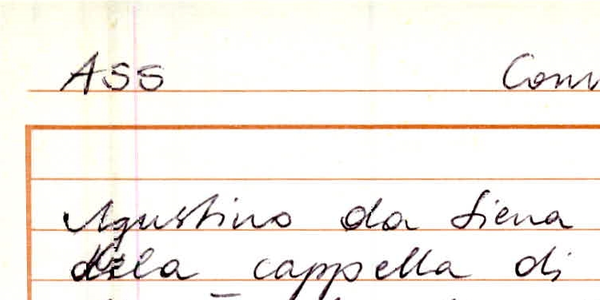 ASS
Agustino da Siena
della cappella di